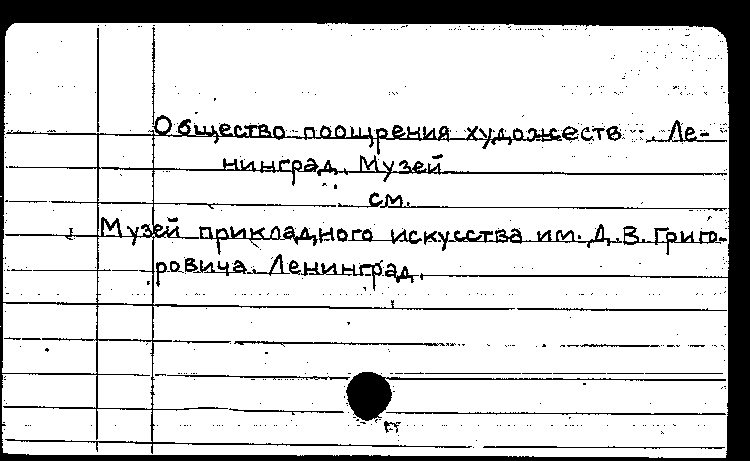 Общество поощрения художеств. Ле-
нинград. Музей
см.
Музей прикладного искусства им. Д.В. Григо-
ровича. Ленинград.